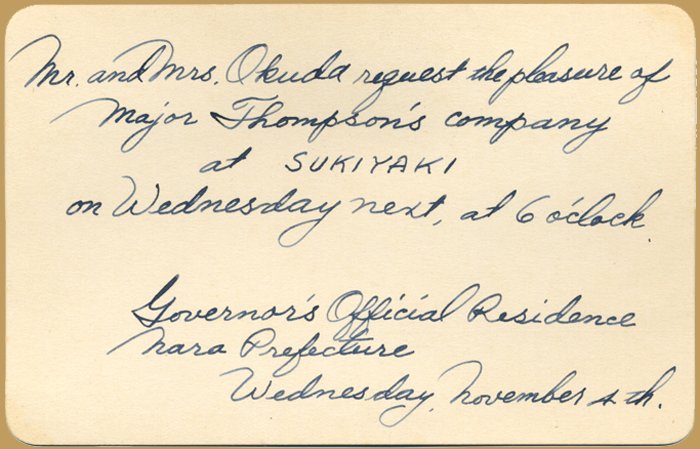 Mr. and Mrs. Okuda request the pleasure of
Major Thompson's company
at SUKIYAKI
on Wednesday next, at 6 o'clock.
Governor's Official Residence
Nara Prefecture
Wednesday, November 4th.